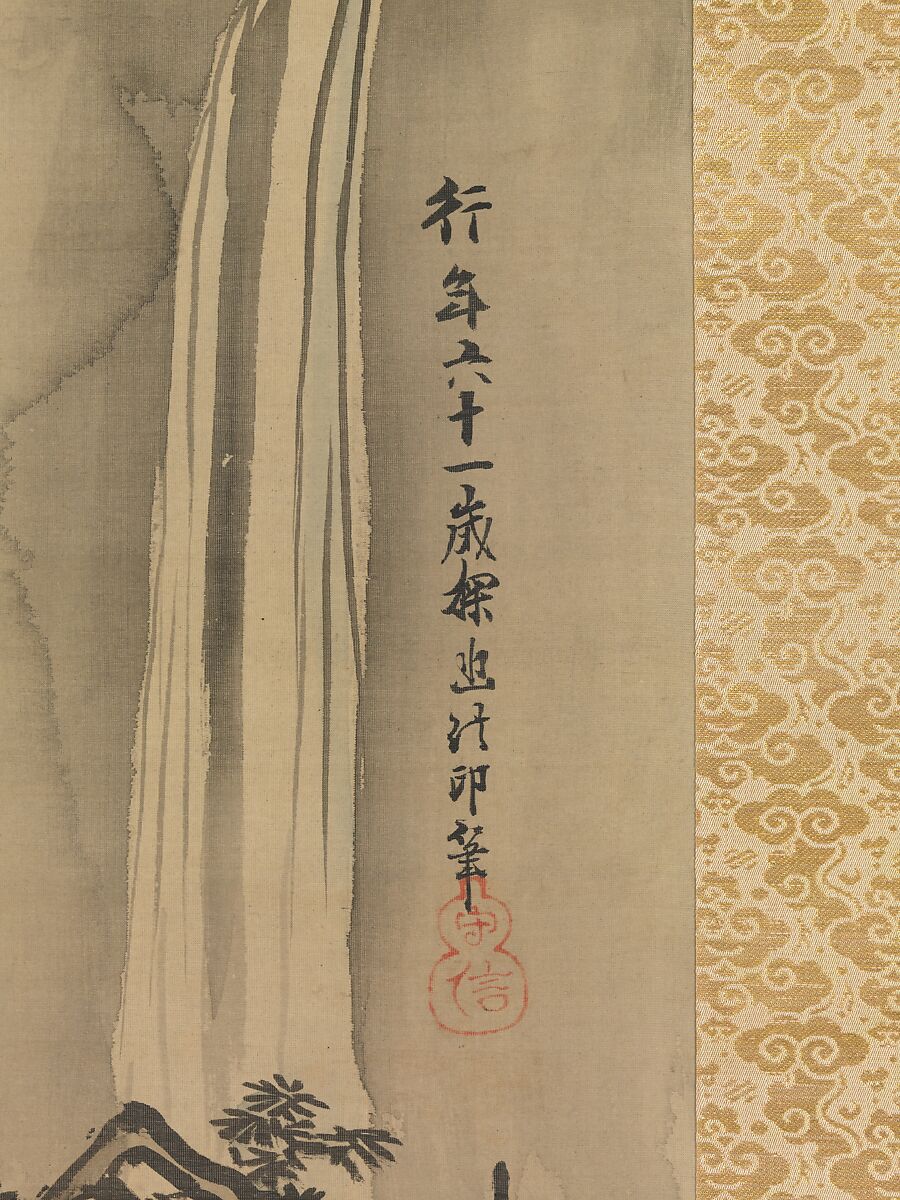 行年六十一歳探幽法印筆
守信